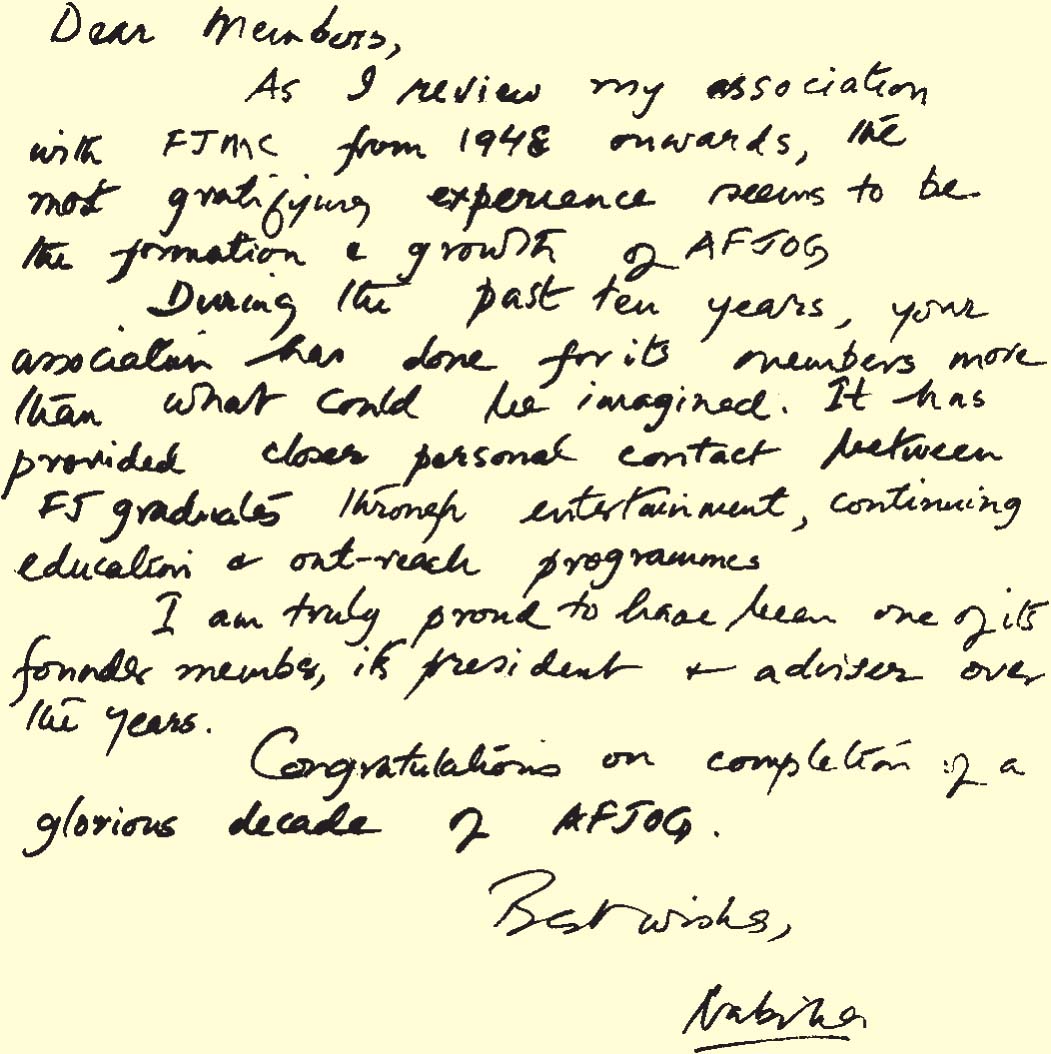 Dear Members,
As I review my association
with FJMC from 1948 onwards, the
most gratifying experience seems to be
the formation & growth of AFJOG
During the past ten years, your
association has done for its members more
than what could be imagined. It has
provided closer personal contact between
FJ graduates through entertainment, continuing
education & out-reach programmes
I am truly proud to have been one of its
founder member, its president & adviser over
the years.
Congratulations on completion of a
glorious decade of AFJOG.
Best wishes,
Nabiha